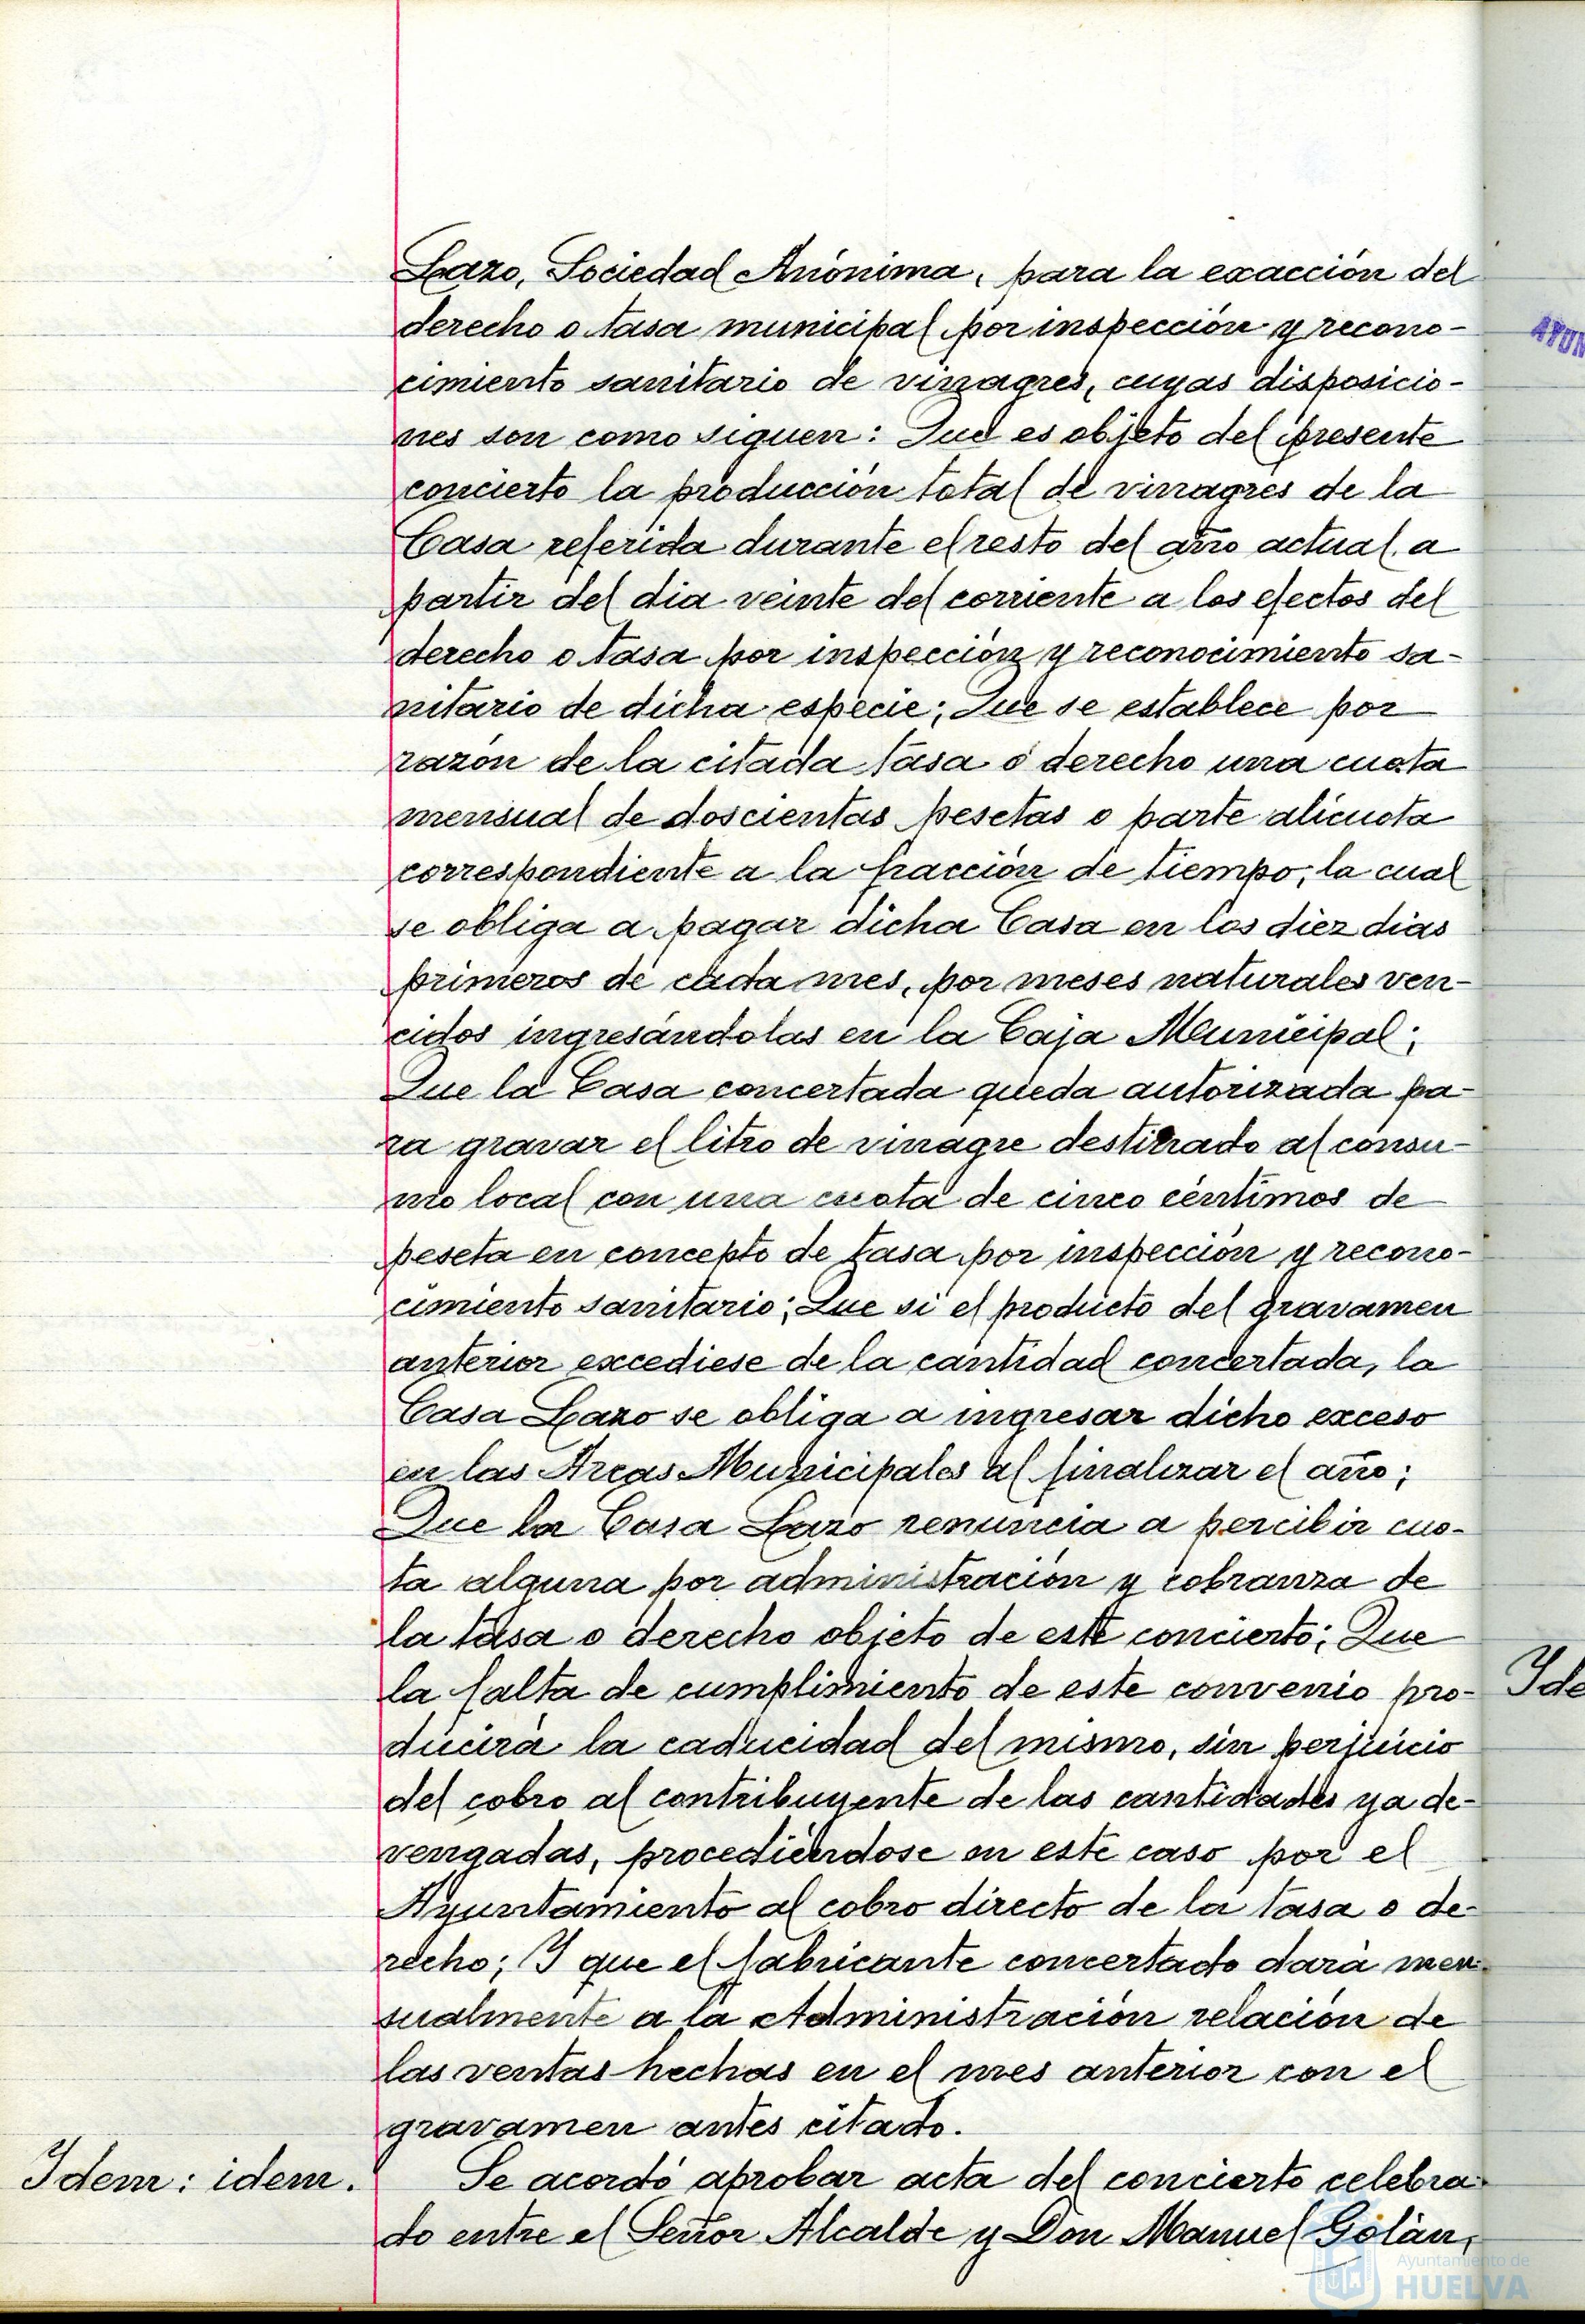 Lazo, Sociedad Anónima, para la exacción del
derecho o tasa municipal por inspección y recono-
cimiento sanitario de vinagres, cuyas disposicio-
nes son como siguen: Que es objeto del presente
concierto la producción total de vinagres de la
Casa referida durante el resto del año actual, a
partir del dia veinte del corriente a los efectos del
derecho o tasa por inspección y reconocimiento sa-
nitario de dicha especie; Que se establece por
razón de la citada tasa o derecho una cuota
mensual de doscientas pesetas o parte alicuota
correspondiente a la fracción de tiempo, la cual
se obliga a pagar dicha Casa en los diez dias
primeros de cada mes, por meses naturales ven-
cidos ingresándolas en la Caja Municipal;
Que la Casa concertada queda autorizada pa-
ra gravar el litro de vinagre destinado al consu-
mo local con una cuota de cinco céntimos de
peseta en concepto de tasa por inspección y recono-
cimiento sanitario; Que si el producto del gravamen
anterior excediese de la cantidad concertada, la
Casa Lazo se obliga a ingresar dicho exceso
en las Arcas Municipales al finalizar el año;
Que la Casa Lazo renuncia a percibir cuo-
ta alguna por administración y cobranza de
la tasa o derecho objeto de este concierto; Que
la falta de cumplimiento de este convenio pro-
ducirá la caducidad del mismo, sin perjuicio
del cobro al contribuyente de las cantidades ya de-
vengadas, procediéndose en este caso por el
Ayuntamiento al cobro directo de la tasa o de-
recho; Y que el fabricante concertado dará men-
sualmente a la Administración relación de
las ventas hechas en el mes anterior con el
gravamen antes citado.
Idem: idem. Se acordó aprobar acta del concierto celebra-
do entre el Señor Alcalde y Don Manuel Golán,
Ayuntamiento de
HUELVA
AYUN
Ide